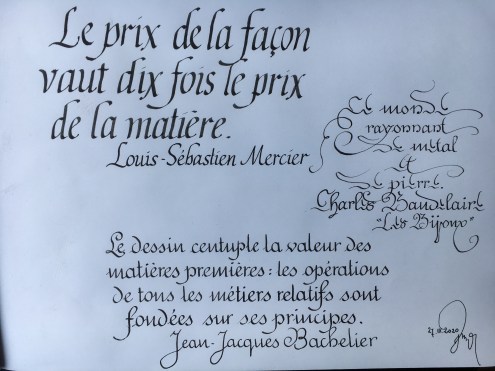 Le prix de la façon
vaut dix fois le prix
de la matière.
Louis-Sébastien Mercier
Ce monde
rayonnant
De métal
et
De pierre.
Charles Baudelaire
"Les Bijoux"
Le dessin centuple la valeur des
matières premières : les opérations
de tous les métiers relatifs sont
fondées sur ses principes.
Jean-Jacques Bachelier